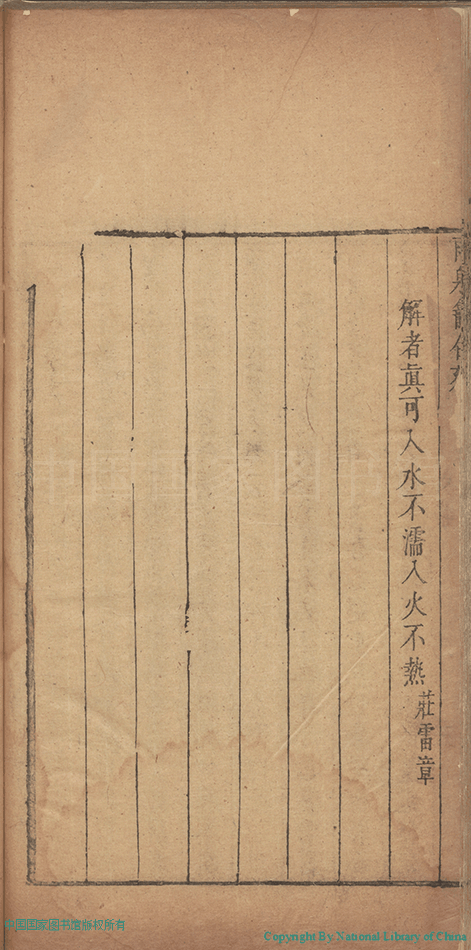 解者眞可入水不濡入火不熱
莊雷章
中国国家图书馆
中国国家图书馆版权所有
Copyright By National Library of China